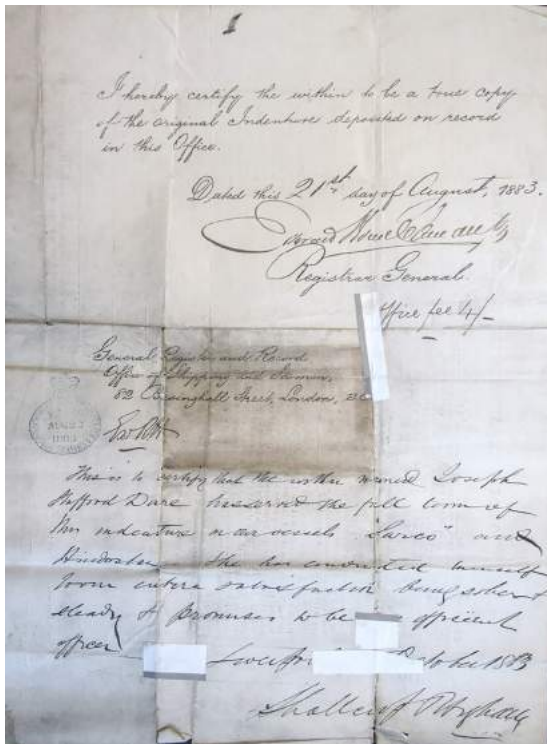 I hereby certify the within to be a true copy
of the original Indenture deposited on record
in this Office.
Dated this 21st day of August, 1883.
Registrar General.
Office fee 4/-
General Register and Record
Office of Shipping and Seamen,
82 Basinghall Street, London, E.C.
This is to certify that the within named Joseph
Stafford Dare has served the full term of
his indenture in our vessels and
Hindostan He has conducted himself
to our entire satisfaction being sober &
steady & promises to be efficient
officer
Liverpool October 1883